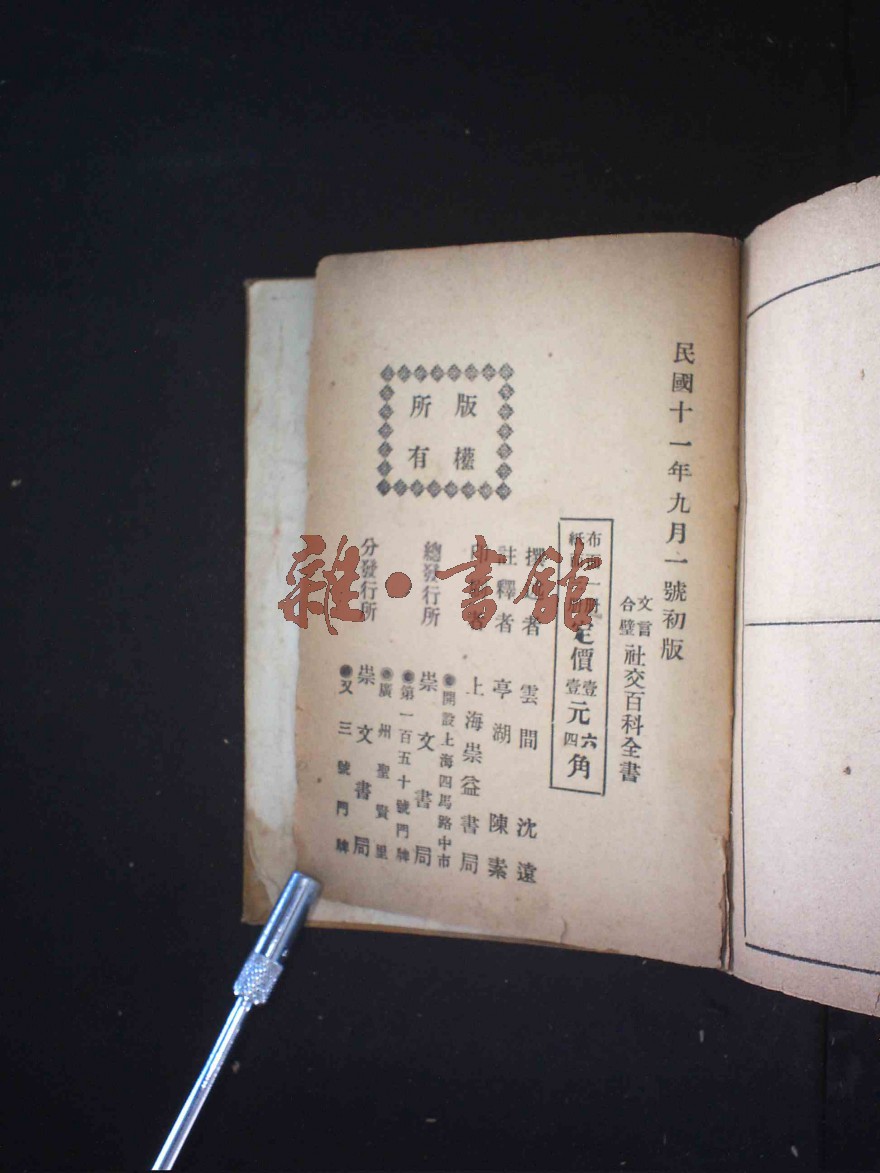 民國十一年九月一號初版
文言
合璧
社交百科全書
布面一册
紙面一册
定價
壹
壹
元
六
四
角
撰述者 雲間 沈遠
註釋者 亭湖 陳素
上海崇益書局
總發行所 崇文書局
開設上海四馬路中市
第一百五十號門牌
分發行所 崇文書局
廣州聖賢里
又三號門牌
版權
所有
雜·書館